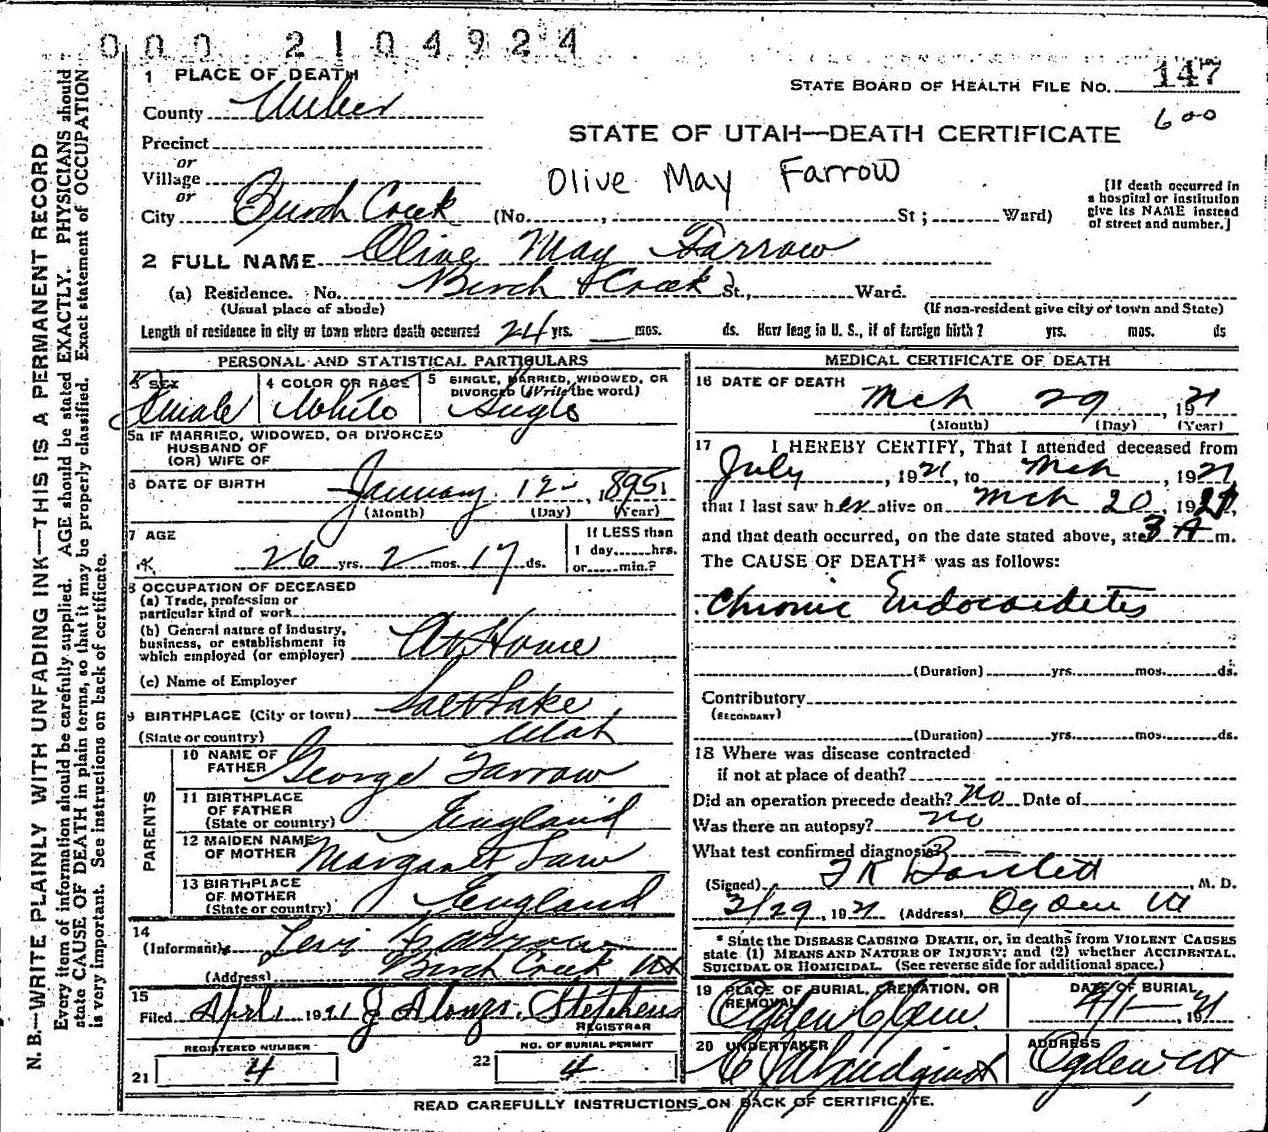 000 2104924
1 PLACE OF DEATH
STATE BOARD OF HEALTH FILE NO. 147
County Weber
600
STATE OF UTAH—DEATH CERTIFICATE
Precinct
or
Village
or
Olive May Farrow
[If death occurred in
a hospital or institution
give its NAME instead
of street and number.]
City Burch Creek (No. , St; Ward)
2 FULL NAME Olive May Farrow
(a) Residence. No. Burch Creek St., Ward.
(Usual place of abode) (If non-resident give city or town and State)
Length of residence in city or town where death occurred 24 yrs. mos. ds. How long in U. S., if of foreign birth? yrs. mos. ds
PERSONAL AND STATISTICAL PARTICULARS
3 SEX 4 COLOR OR RACE 5 SINGLE, MARRIED, WIDOWED, OR
DIVORCED (Write the word)
Female White Single
5a IF MARRIED, WIDOWED, OR DIVORCED
HUSBAND OF
(OR) WIFE OF
6 DATE OF BIRTH January 12 1895
(Month) (Day) (Year)
7 AGE If LESS than
1 day hrs.
26 yrs. 2 mos. 17 ds. or min.?
8 OCCUPATION OF DECEASED
(a) Trade, profession or
particular kind of work
(b) General nature of industry,
business, or establishment in
which employed (or employer) At Home
(c) Name of Employer
9 BIRTHPLACE (City or town) Salt Lake
(State or country) Utah
PARENTS
10 NAME OF
FATHER George Farrow
11 BIRTHPLACE
OF FATHER
(State or country) England
12 MAIDEN NAME
OF MOTHER Margaret Law
13 BIRTHPLACE
OF MOTHER
(State or country) England
14
(Informant) Levi Farrow
(Address) Burch Creek Ut
15
Filed April 1 1921 J Alonzo Stephens
REGISTRAR
REGISTERED NUMBER NO. OF BURIAL PERMIT
21 4 22 4
MEDICAL CERTIFICATE OF DEATH
16 DATE OF DEATH
Mch 29, 1921
(Month) (Day) (Year)
17 I HEREBY CERTIFY, That I attended deceased from
July, 1921, to Mch, 1921
that I last saw her alive on Mch 20, 1921,
and that death occurred, on the date stated above, at 3 A m.
The CAUSE OF DEATH* was as follows:
Chronic Endocardetes
(Duration) yrs. mos. ds.
Contributory
(SECONDARY)
(Duration) yrs. mos. ds.
18 Where was disease contracted
if not at place of death?
Did an operation precede death? No Date of
Was there an autopsy? No
What test confirmed diagnosis?
(Signed) F K Bartlett, M. D.
3/29, 1921 (Address) Ogden Ut
* State the DISEASE CAUSING DEATH, or, in deaths from VIOLENT CAUSES
state (1) MEANS AND NATURE OF INJURY; and (2) whether ACCIDENTAL,
SUICIDAL OR HOMICIDAL. (See reverse side for additional space.)
19 PLACE OF BURIAL, CREMATION, OR
REMOVAL
DATE OF BURIAL
Ogden Cem. 4/1, 1921
20 UNDERTAKER ADDRESS
Ogden Ut
READ CAREFULLY INSTRUCTIONS ON BACK OF CERTIFICATE.
N. B.—WRITE PLAINLY WITH UNFADING INK—THIS IS A PERMANENT RECORD
Every item of information should be carefully supplied. AGE should be stated EXACTLY. PHYSICIANS should
state CAUSE OF DEATH in plain terms, so that it may be properly classified. Exact statement of OCCUPATION
is very important. See instructions on back of certificate.